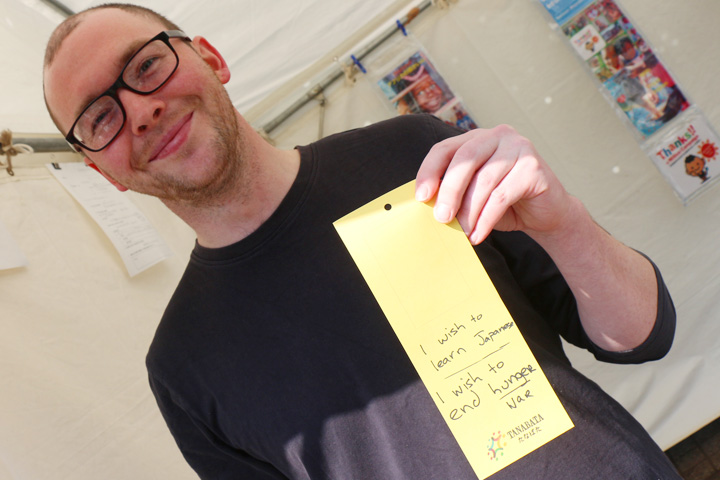 Thanks!!
I wish to
learn Japanese
I wish to
end hunger
War
TANABATA
たなばた